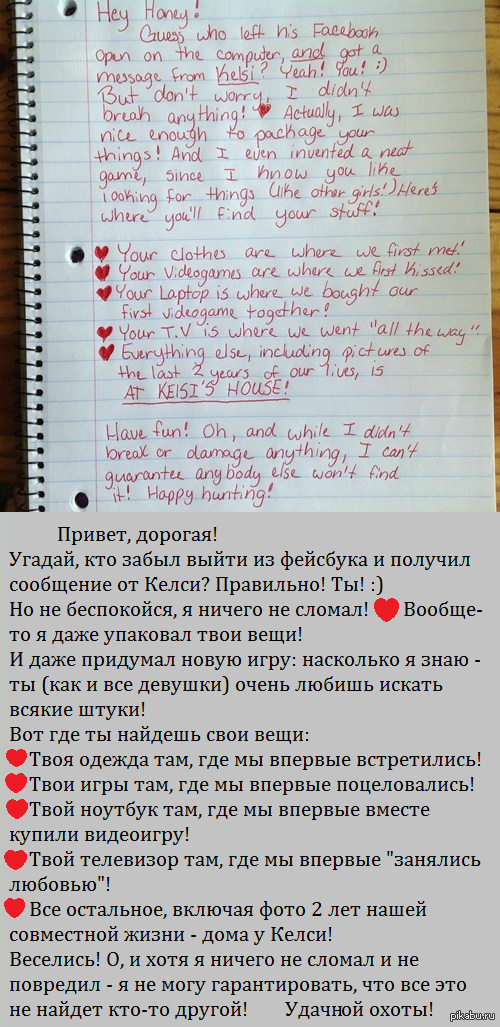 Hey Honey!
Guess who left his Facebook
open on the computer, and got a
message from Kelsi? Yeah! You! :)
But don't worry, I didn't
break anything! ❤ Actually, I was
nice enough to package your
things! And I even invented a neat
game, since I know you like
looking for things (like other girls!) Here's
where you'll find your stuff!
❤ Your clothes are where we first met!
❤ Your Videogames are where we first kissed!
❤ Your Laptop is where we bought our
first videogame together!
❤ Your T.V is where we went "all the way"
❤ Everything else, including pictures of
the last 2 years of our lives, is
AT KElSI'S HOUSE!
Have fun! Oh, and while I didn't
break or damage anything, I can't
guarantee anybody else won't find
it! Happy hunting!
Привет, дорогая!
Угадай, кто забыл выйти из фейсбука и получил
сообщение от Келси? Правильно! Ты! :)
Но не беспокойся, я ничего не сломал! ❤ Вообще-
то я даже упаковал твои вещи!
И даже придумал новую игру: насколько я знаю -
ты (как и все девушки) очень любишь искать
всякие штуки!
Вот где ты найдешь свои вещи:
❤ Твоя одежда там, где мы впервые встретились!
❤ Твои игры там, где мы впервые поцеловались!
❤ Твой ноутбук там, где мы впервые вместе
купили видеоигру!
❤ Твой телевизор там, где мы впервые "занялись
любовью"!
❤ Все остальное, включая фото 2 лет нашей
совместной жизни - дома у Келси!
Веселись! О, и хотя я ничего не сломал и не
повредил - я не могу гарантировать, что все это
не найдет кто-то другой! Удачной охоты!
pikabu.ru